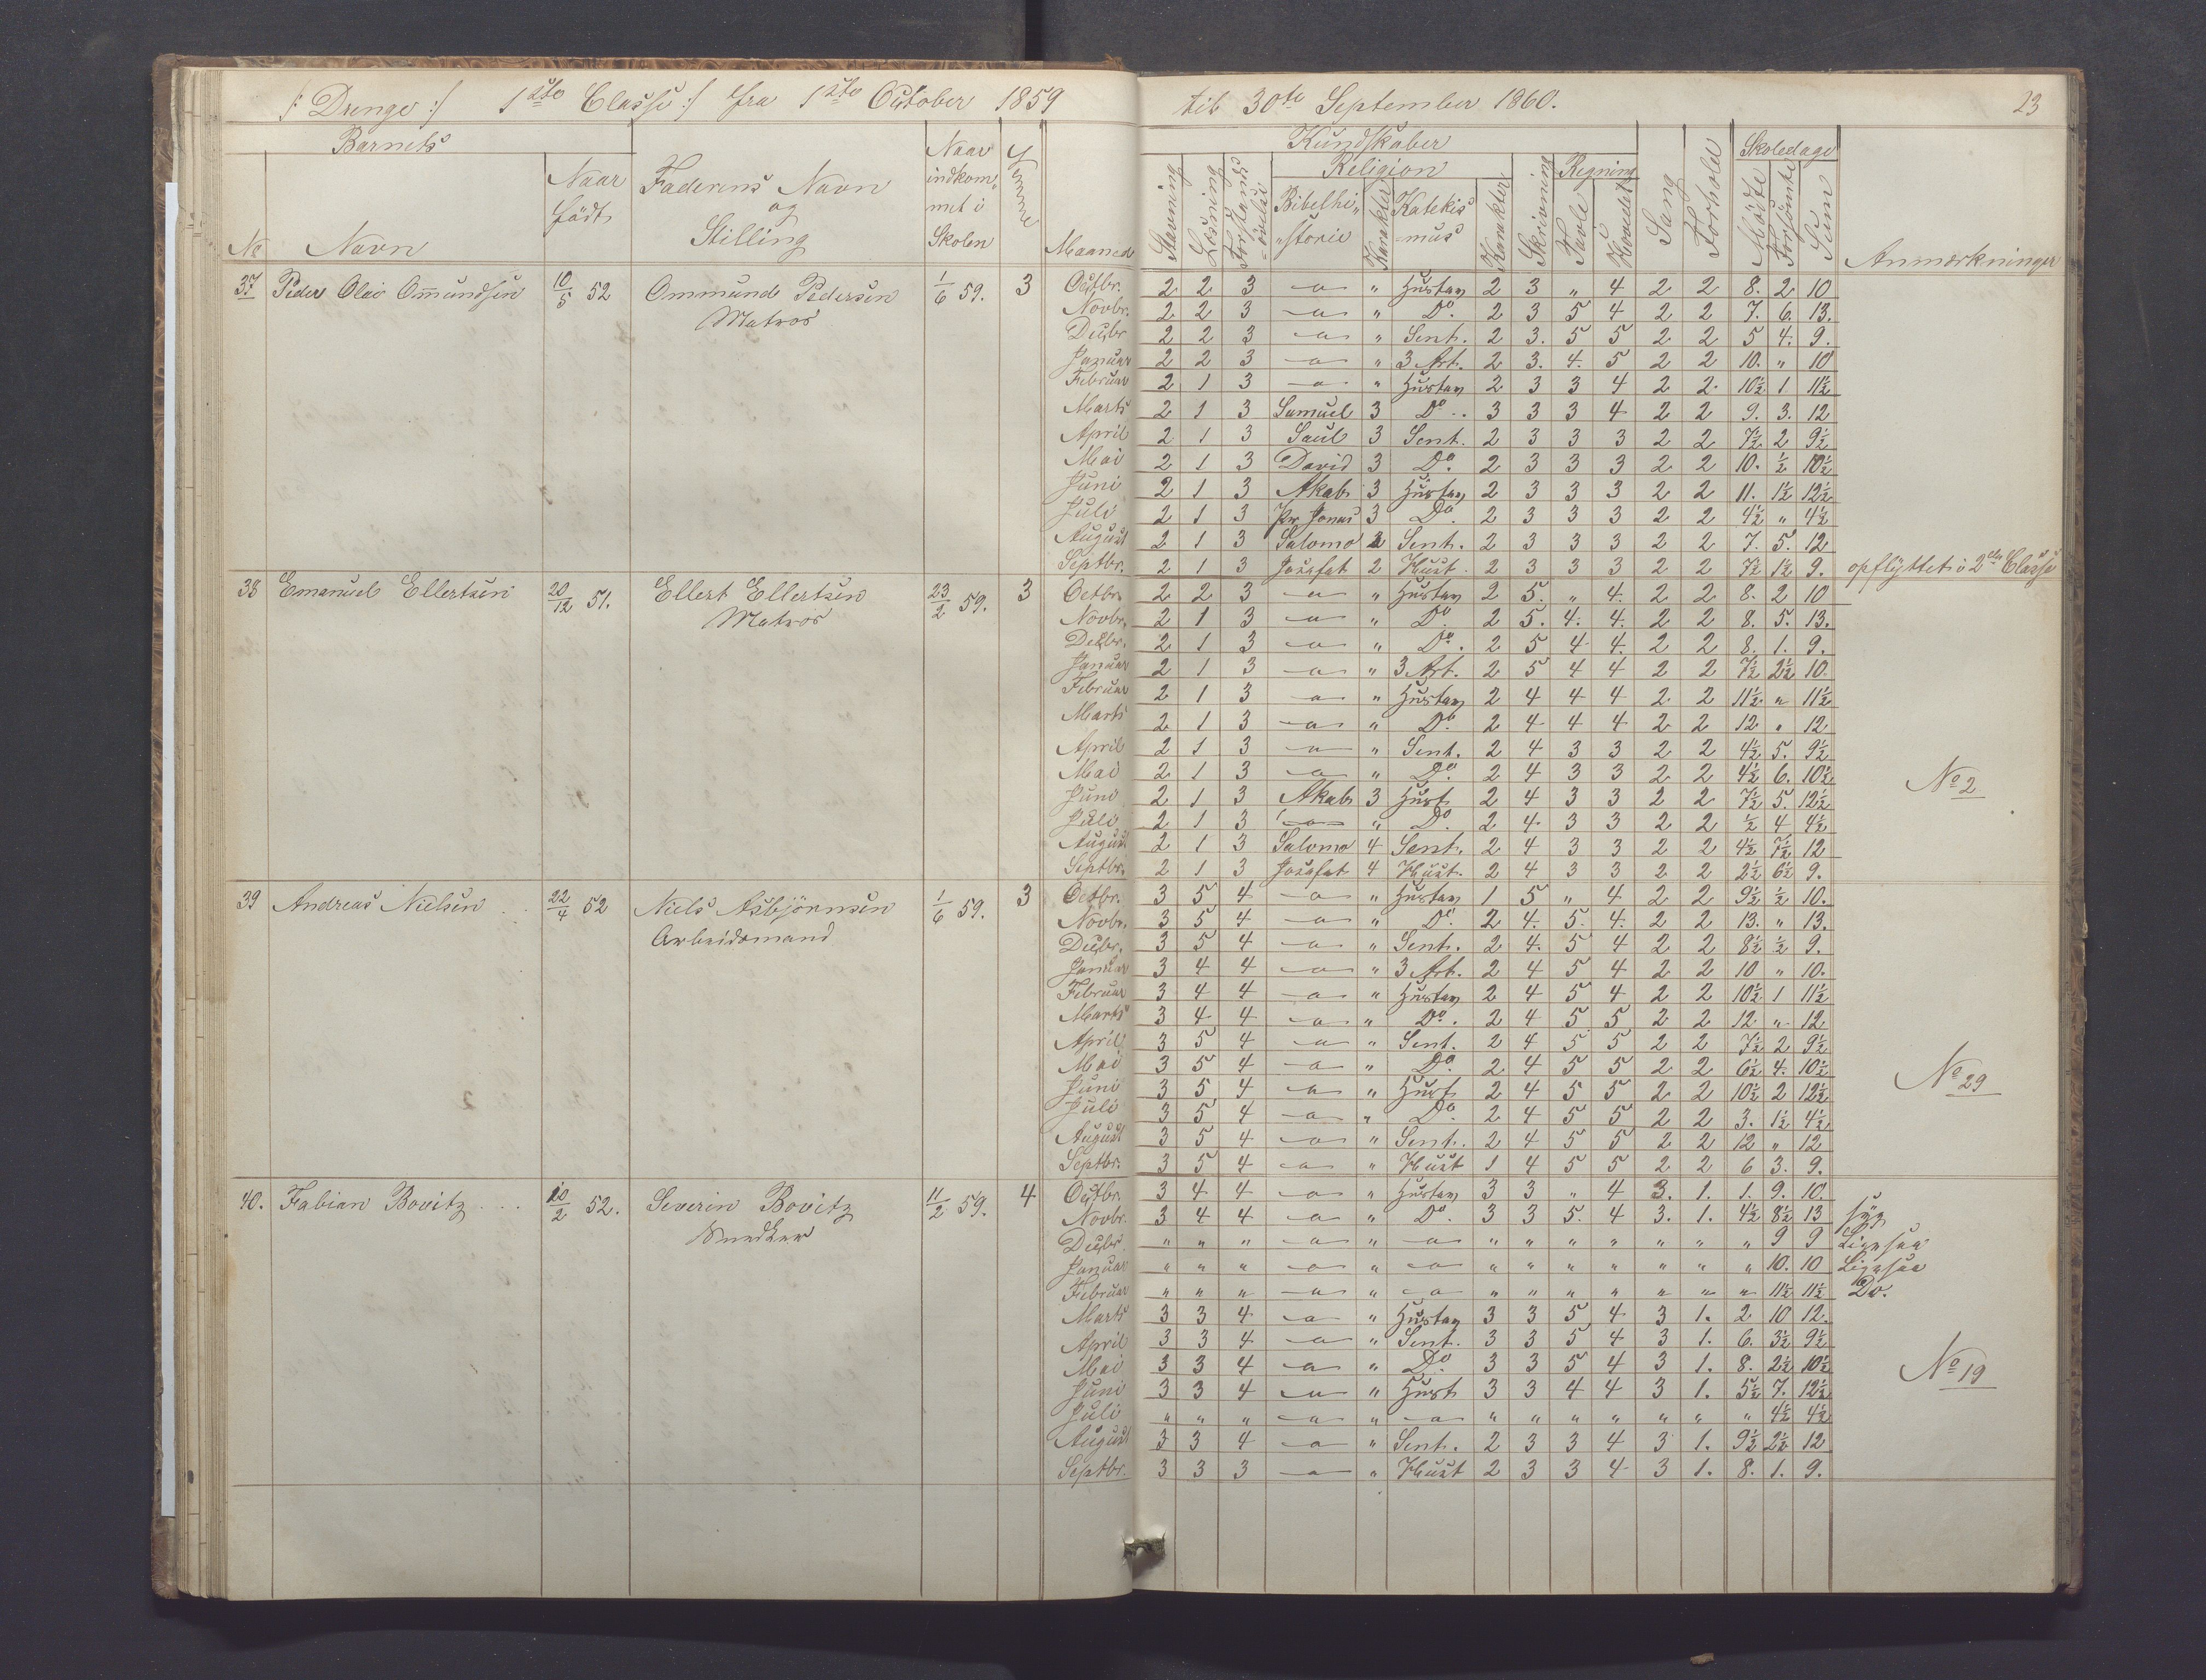 /: Drenge :/ 1ste Classe :/ fra 1ste October 1859 til 30te September 1860. 23
Barnets Kundskaber Skoledage
Naar indkommet i Skolen
Religion Regning
No Navn Naar födt Faderens Navn og Stilling Evne Maaned Stavning Læsning Forstandsövelse Bibelhistorie Karakter Katekismus Karakter Skrivning Tavle Hovedet Sang Forhold Mödte Forsömte Sum Anmærkninger
37 Peder Olai Omundsen 10/5 52 Ommund Pedersen 1/6 59. 3 Octbr. 2 2 3 " Hustav 2 3 " 4 2 2 8. 2 10
Matros Novbr. 2 2 3 " Do. 2 3 5 4 2 2 7. 6. 13.
Decbr 2 2 3 " Sent. 2 3. 5 5 2 2 5 4. 9.
Januar 2 2 3 " 3 Art. 2 3. 4. 5 2 2 10. " 10
Februar 2 1 3 " Hustav 2 3 3 4 2 2. 10½ 1 11½
Marts 2 1 3 Samuel 3 Do.. 3 3 3 4 2 2 9. 3. 12
April 2 1 3 Saul 3 Sent. 2 3 3 3 2 2 7½ 2 9½
Mai 2 1 3 David 3 Do. 2 3 3 3 2 2 10. ½ 10½
Juni 2 1 3 Akab 3 Hustav 2 3 3 3 2 2 11. 1½ 12½
Juli 2 1 3 Pr. Jonas 3 Do. 2 3 3 3 2 2 4½ " 4½
August 2 1 3 Salomo 2 Sent. 2 3 3 3 2 2 7. 5. 12
Septbr. 2 1 3 Josafat 2 Hust. 2 3 3 3 2 2 7½ 1½ 9. opflyttet i 2den Classe
38 Emanuel Ellertsen 20/12 51. Ellert Ellertsen 23/2 59. 3 Octbr. 2 2 3 " Hustav 2 5. " 4. 2 2 8. 2 10
Matros Novbr. 2 1 3 " Do. 2 5. 4. 4. 2 2 8. 5. 13.
Decbr. 2 1 3 " Do. 2 5 4 4. 2 2 8. 1. 9.
Januar 2 1 3 " 3 Art. 2 5 4 4 2 2 7½ 2½ 10.
Februar 2 1 3 " Hustav 2 4 4 4 2 2 11½ " 11½
Marts 2 1 3 " Do. 2 4 4 4 2 2 12 " 12
April 2 1 3 " Sent. 2 4 3 3 2 2 4½ 5. 9½
Mai 2 1 3 " Do. 2 4 3 3 2 2 4½ 6. 10½
Juni 2 1 3 Akab 3 Hust 2 4 3 3 2 2 7½ 5. 12½ No 2
Juli 2 1 3 " Do. 2 4 3 3 2 2 ½ 4 4½
August 2 1 3 Salomo 4 Sent. 2 4 3 3 2 2 4½ 7½ 12
Septbr. 2 1 3 Josafat 4 Hust. 2 4 3 3 2 2 2½ 6½ 9.
39 Andreas Nielsen 22/4 52 Niels Asbjörnsen 1/6 59. 3 Octbr. 3 5 4 " Hustav 1 5 " 4 2 2 9½ ½ 10.
Arbeidsmand Novbr. 3 5 4 " Do. 2 4. 5. 4. 2 2 13. " 13.
Decbr. 3 5 4 " Sent. 2 4. 5 4 2 2 8½ ½ 9.
Januar 3 4 4 " 3 Art. 2 4 5 4 2 2 10 " 10.
Februar 3 4 4 " Hustav 2 4 5 4 2 2 10½ 1 11½
Marts 3 4 4 " Do. 2 4 5 5 2 2 12 " 12
April 3 5 4 " Sent. 2 4 5 5 2 2 7½ 2 9½
Mai 3 5 4 " Do. 2 4 5 5 2 2 6½ 4. 10½
Juni 3 5 4 " Hust 2 4 5 5 2 2 10½ 2 12½ No 29
Juli 3 5 4 " Do. 2 4 5 5 2 2 3. 1½ 4½
August 3 5 4 " Sent. 2 4 5 5 2 2 12 " 12
Septbr. 3 5 4 " Hust 1 4 5 5 2 2 6 3. 9.
40. Fabian Bovitz 10/2 52. Severin Bovitz 11/2 59. 4 Octbr. 3 4 4 " Hustav 3 3 " 4 3. 1. 1. 9. 10.
Snedker Novbr. 3 4 4 " Do. 3 3 5. 4 3. 1. 4½ 8½ 13 syg
Decbr. " " " " " " " " " " " 9 9 Ligesaa
Januar " " " " " " " " " " " 10. 10 Ligesaa
Februar " " " " " " " " " " " 11½ 11½ Do.
Marts 3 3 4 " Hustav 3 3 5 4 3 1. 2 10 12.
April 3 3 4 " Sent. 3 3 5 4 3 1. 6. 3½ 9½
Mai 3 3 4 " Do. 3 3 5 4 3 1. 8. 2½ 10½
Juni 3 3 4 " Hust 3 3 4 4 3 1. 5½ 7. 12½ No 19
Juli " " " " " " " " " " " 4½ 4½
August 3 3 4 " Sent. 2 3 3 4 3 1. 9½ 2½ 12
Septbr. 3 3 3 " Hust 2 3 3 4 3 1. 8. 1. 9.